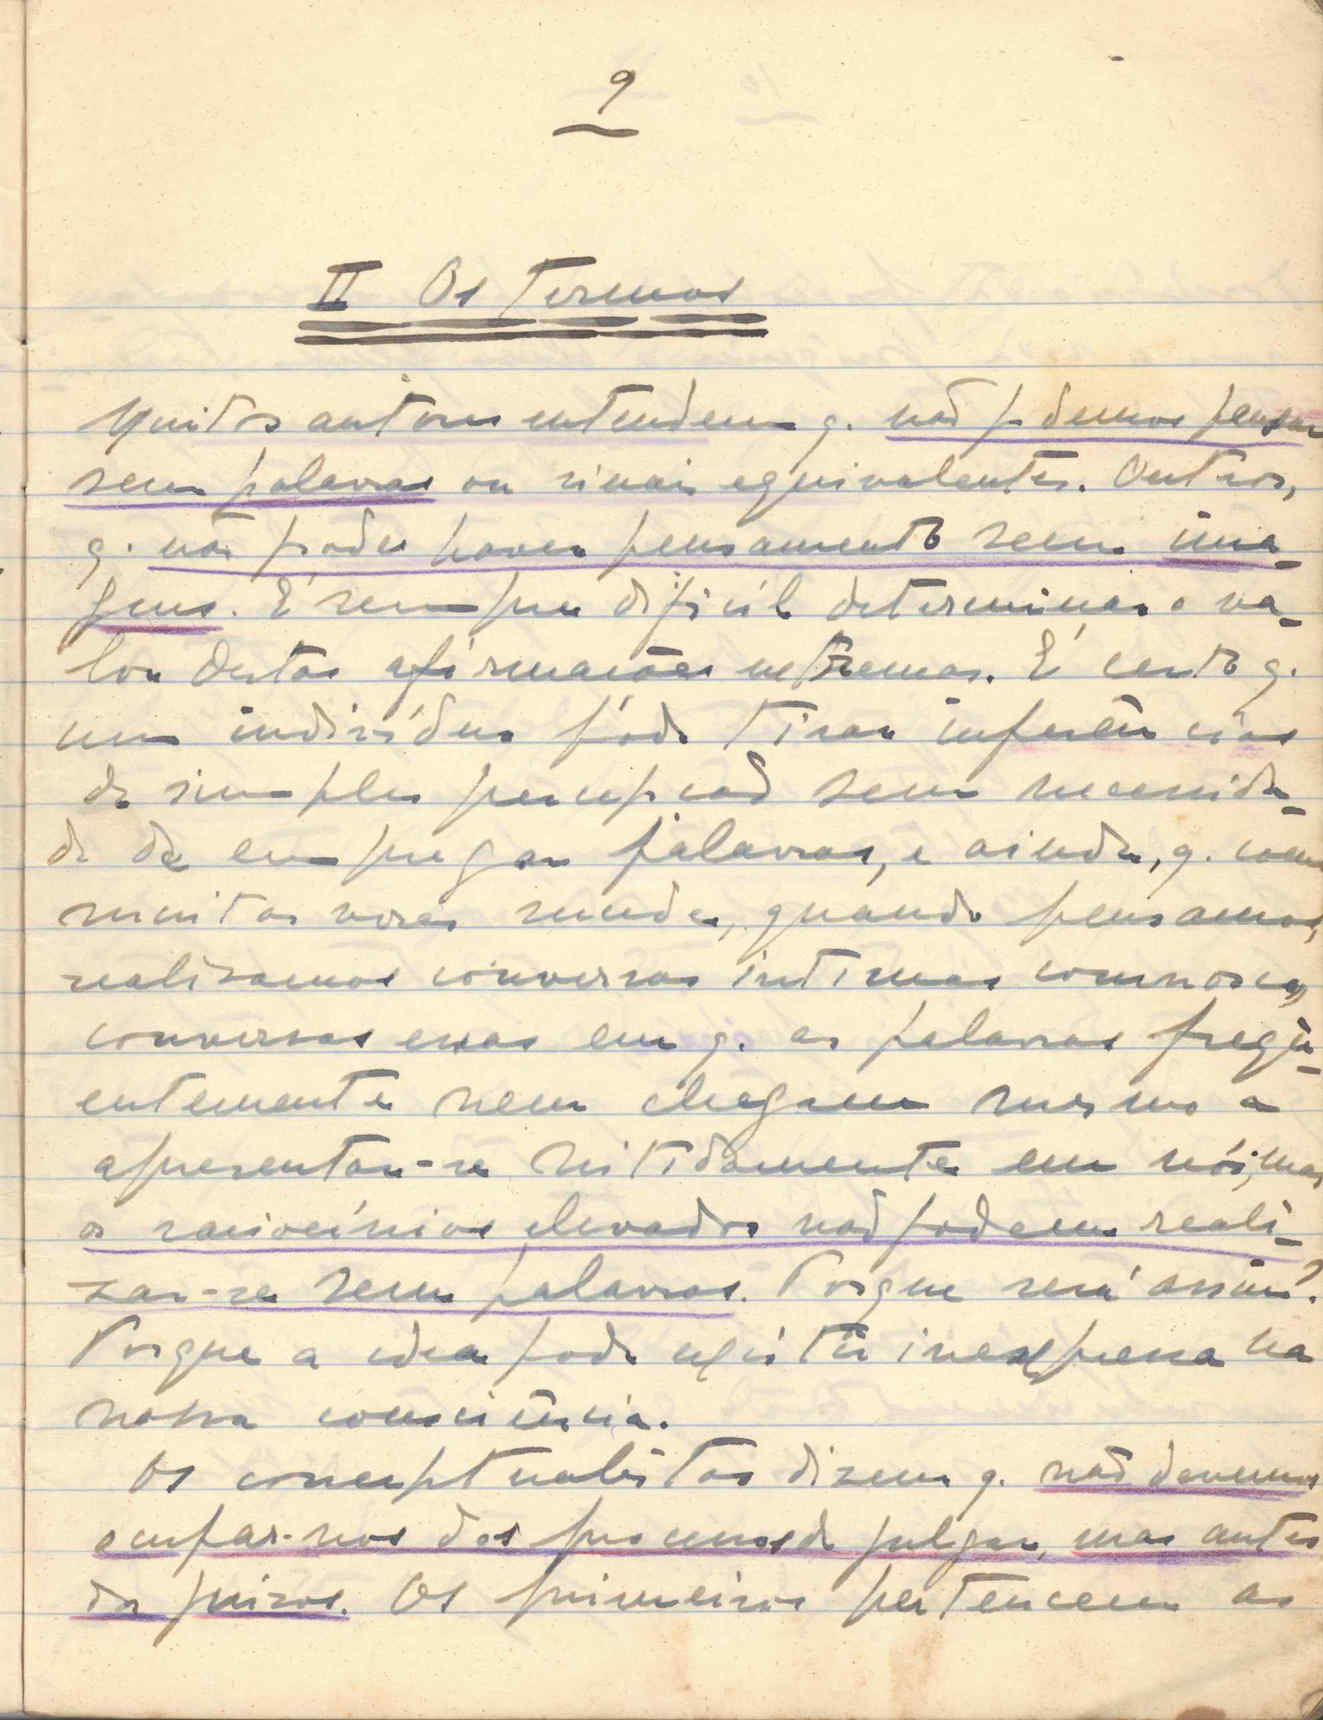 9
II Os Termos
Muitos autores entendem q. não podemos pensar
sem palavras ou sinais equivalentes. Outros,
q. não póde haver pensamento sem ima-
gens. É sempre dificil determinar o va-
lor destas afirmações extremas. É certo q.
um indivíduo póde tirar inferências
de simples percepção sem necessida-
de de empregar palavras, e ainda, q. com
muitas vezes mudas, quando pensamos,
realisamos conversas intimas comnosco,
conversas essas em q. as palavras freqü-
entemente nem chegam mesmo a
apresentar-se nitidamente em nós, mas
os raciocínios elevados não podem reali-
zar-se sem palavras. Porque será assim?
Porque a idea pode existir inexpressa na
nossa consciência.
Os conceptualistas dizem q. não devemos
ocupar-nos dos processos de julgar, mas antes
dos juizos. Os primeiros pertencem ao